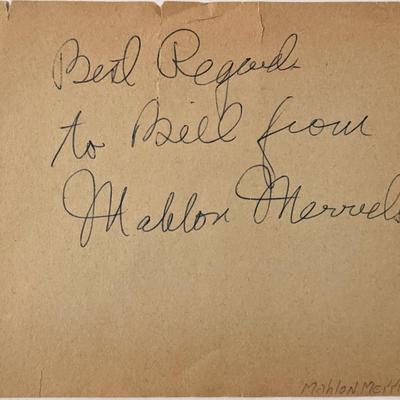 Best Regards
to Bill from
Mahlon Merrick
MAhloN MERR